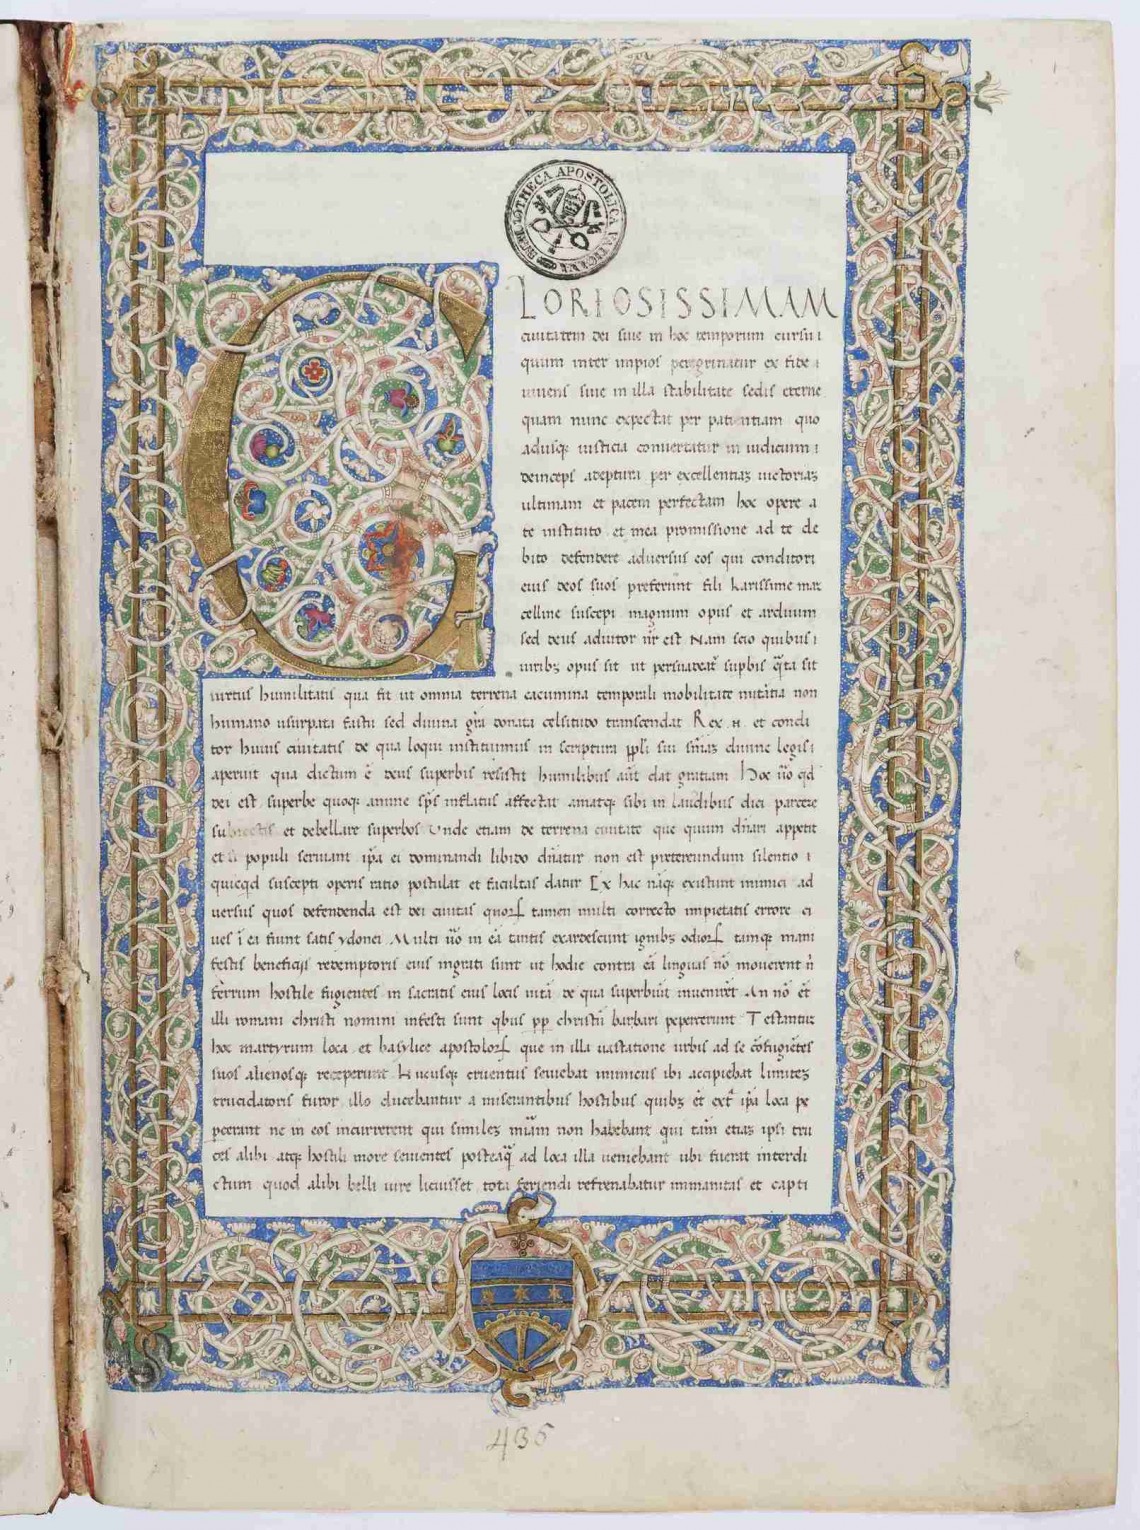 BIBLIOTHECA APOSTOLICA VATICANA
GLORIOSISSIMAM
ciuitatem dei siue in hoc temporum cursu
quum inter impios peregrinatur ex fide
uiuens siue in illa stabilitate sedis eterne
quam nunc expectat per patientiam quo
adusq; iusticia conuertatur in iudicium
deinceps adeptura per excellentiaz uictoriaz
ultimam et pacem perfectam hoc opere a
te instituto et mea promissione ad te de
bito defendere aduersus eos qui conditori
eius deos suos preferunt fili karissime mar
celline suscepi magnum opus et arduum
sed deus adiutor nr̄ est Nam scio quibus
uiribꝫ opus sit ut persuadeat᷑ supbis q̄ta sit
uirtus humilitatis qua fit ut omnia terrena cacumina temporali mobilitate nutātia non
humano usurpata fastu sed diuina gr̄a donata celsitudo transcendat Rex .n. et condi
tor huius ciuitatis de qua loqui instituimus in scriptura ppl̄i sui sn̄iaz diuine legis
aperuit qua dictum ē deus superbis resistit humilibus aut̄ dat gratiam Hoc ūo qd
dei est superbe quoq; anime sp̄s inflatus affectat amatq; sibi in laudibus dici parcere
subiectis et debellare superbos Vnde etiam de terrena ciuitate que quum dn̄ari appetit
et si populi seruiant ip̄a ei dominandi libido dn̄atur non est pretereundum silentio
quicqd suscepti operis ratio postulat et facultas datur Ex hac nāq; existunt inimici ad
uersus quos defendenda est dei ciuitas quoꝝ tamen multi correcto impietatis errore ci
ues ī ea fiunt satis ydonei Multi ūo in eā tantis exardescunt ignibꝫ odioꝝ tamq; mani
festis beneficijs redemptoris eius ingrati sunt ut hodie contra eā linguas nō mouerent n̄
ferrum hostile fugientes in sacratis eius locis uitā de qua superbiūt inuenirēt An nō et̄
illi romani christi nomini infesti sunt qbus pp christū barbari pepercerunt Testantur
hoc martyrum loca et basylice apostoloꝝ que in illa uastatione urbis ad se cōfugiētes
suos alienosq; receperunt Hucusq; cruentus seuiebat inimicus ibi accipiebat limitez
trucidatoris furor illo ducebantur a miserantibus hostibus quibꝫ et̄ ext̄ ip̄a loca pe
pcerant ne in eos incurrerent qui similez mīam non habebant qui tam̄ etiaz ipsi tru
ces alibi atq; hostili more seuientes posteaq̄ ad loca illa ueniebant ubi fuerat interdi
ctum quod alibi belli iure licuisset tota feriendi refrenabatur immanitas et capti
436